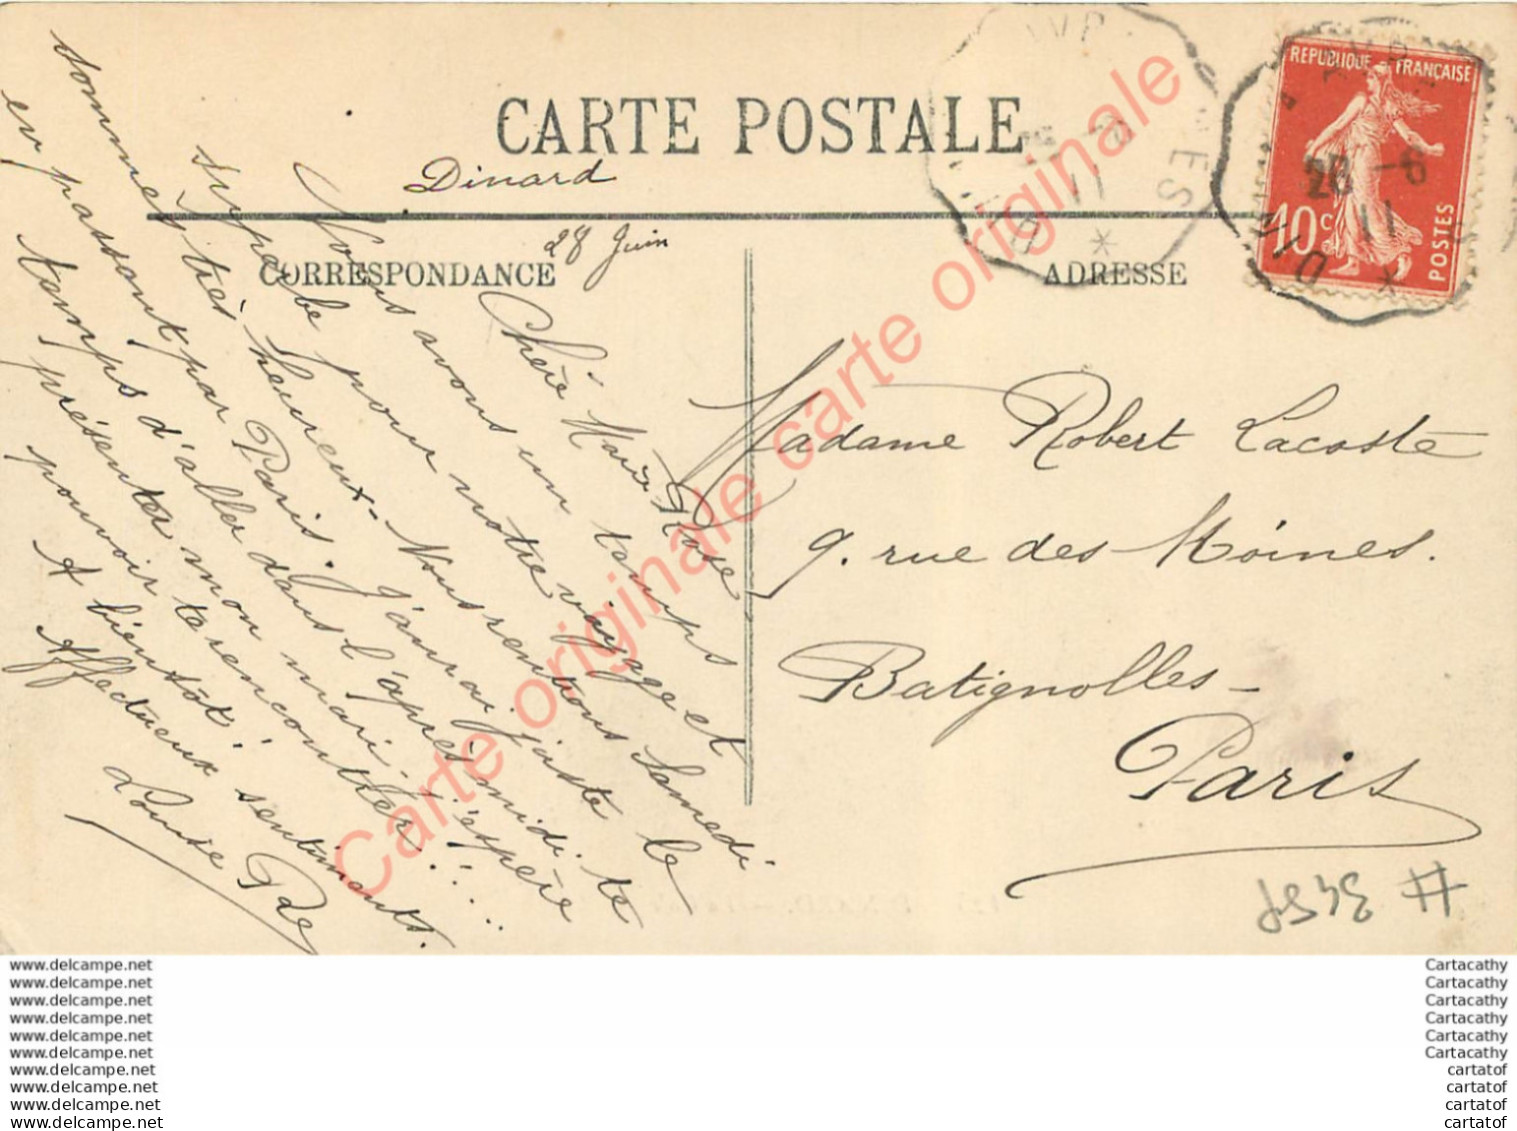 CARTE POSTALE
Dinard
28 Juin
CORRESPONDANCE
ADRESSE
Chère Marie Rose
Nous avons un temps
superbe pour notre voyage et
sommes très heureux - Nous rentrons Samedi
en passant par Paris. J'aurai juste le
temps d'aller dans l'après midi te
présenter mon mari. J'espère
pouvoir te rencontrer!!...
A bientôt!
Affectueux sentiments.
Louise
Madame Robert Lacoste
9. rue des Moines.
Batignolles -
Paris
REPUBLIQUE FRANÇAISE
10c
POSTES
28 - 6
11
DIN
ES
11
# 3459
Carte originale carte originale carte originale
www.delcampe.net
www.delcampe.net
www.delcampe.net
www.delcampe.net
www.delcampe.net
www.delcampe.net
www.delcampe.net
www.delcampe.net
www.delcampe.net
www.delcampe.net
Cartacathy
Cartacathy
Cartacathy
Cartacathy
Cartacathy
Cartacathy
cartatof
cartatof
cartatof
cartatof